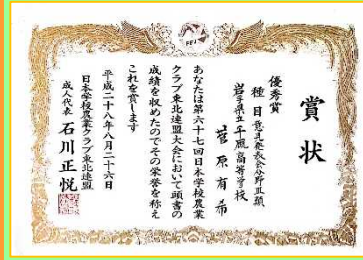 FFJ
賞状
優秀賞
種目 意見発表会分野
岩手県立千厩高等学校
菅原有希
あなたは第六十七回日本学校農業
クラブ東北連盟大会において頭書の
成績を収めたのでその栄誉を称え
これを賞します
平成二十八年八月二十六日
日本学校農業クラブ東北連盟
成人代表 石川正悦